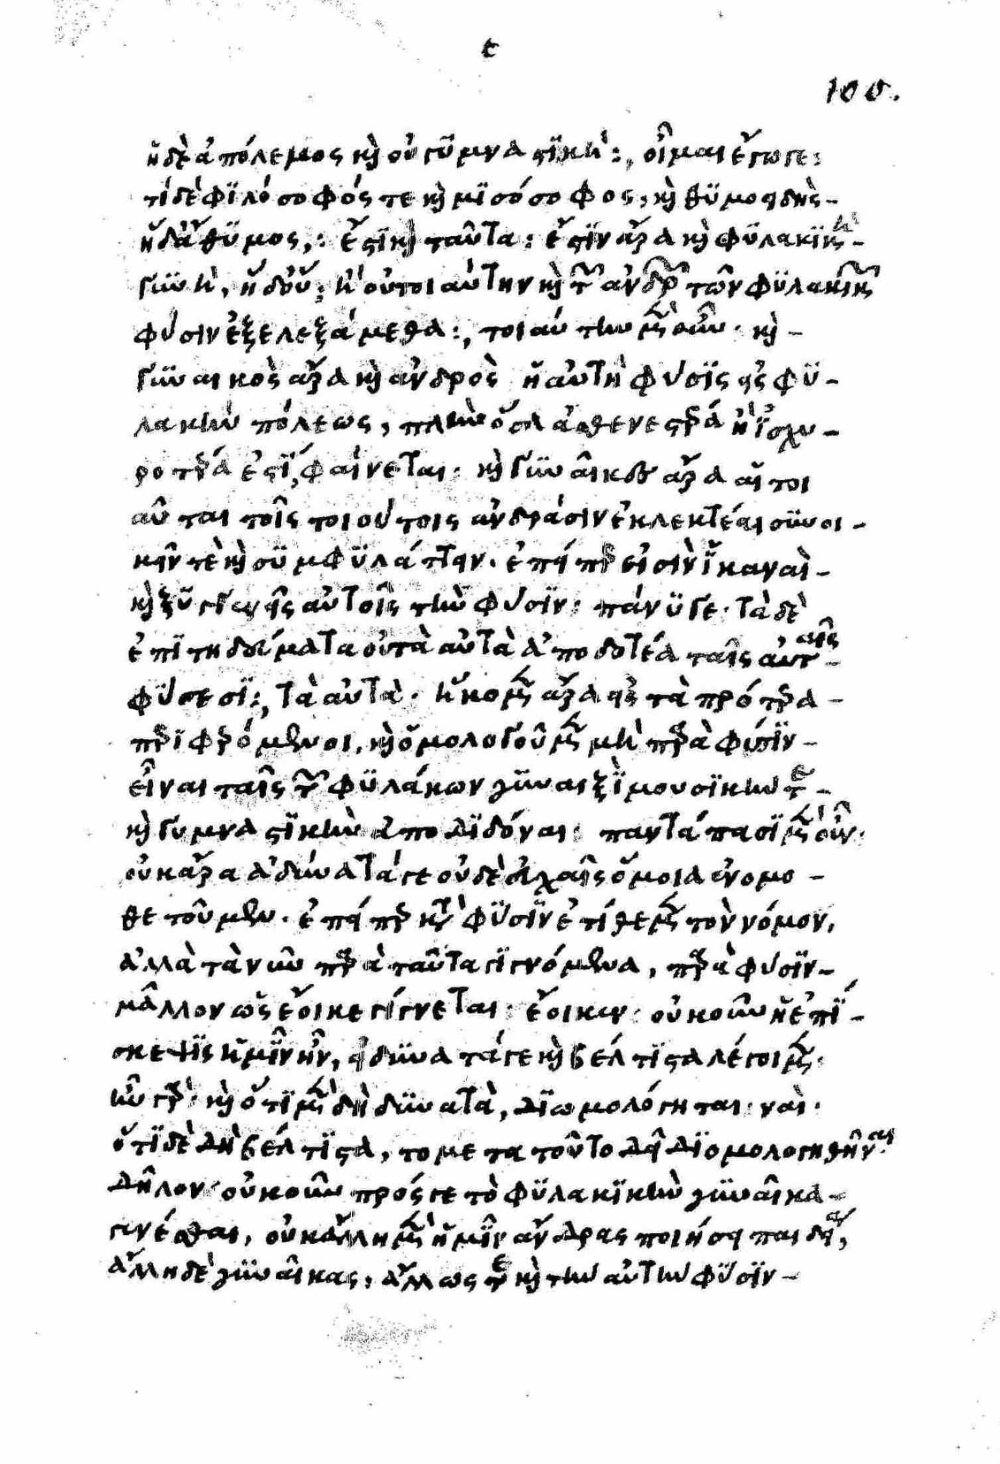 ε
100.
ἡ δὲ ἀπόλεμος καὶ οὐ γϋμναστϊκή:, οἶμαι ἔγωγε:
τί δὲ φϊλόσοφός τε καὶ μϊσόσοφος, καὶ θϋμοειδὴς
ἡ δ' ἄθϋμος,: ἔστϊ καὶ ταῦτα: ἔστϊν ἄρα καὶ φϋλακϊκὴ
γϋνὴ, ἡ δ' οὔ; ἢ οὐ τοιαύτην καὶ τῶν ἀνδρῶν τῶν φϋλακϊκῶν
φύσιν ἐξελεξάμεθα:, τοιαύτην μὲν οὖν· καὶ
γϋναικὸς ἄρα καὶ ἀνδρὸς ἡ αὐτὴ φύσϊς εἰς φϋ-
λακὴν πόλεως, πλὴν ὅσα ἀσθενεστέρα ἢ ἰσχυ-
ροτέρα ἐστϊ, φαίνεται· καὶ γϋναῖκες ἄρα αἵ τοι
αῦται τοῖς τοιούτοις ἀνδράσιν ἐκλεκτέαι σϋνοι-
κεῖν τὲ καὶ σϋμφϋλάττειν· ἐπείπερ εἰσὶν ἱκαναὶ
καὶ ξϋγγενεῖς αὐτοῖς τὴν φύσϊν: πάνϋ γε· τὰ δὲ
ἐπϊτηδεύματα οὐ τὰ αὐτὰ ἀποδοτέα ταῖς αὐταῖς
φϋσεσϊ:, τὰ αὐτὰ· ἥκομεν ἄρα εἰς τὰ πρότερα
περϊφερόμενοι, καὶ ὁμολογοῦμεν μὴ παρὰ φύσϊν
εἶναι ταῖς τῶν φϋλάκων γϋναιξὶ μουσϊκήν τε
καὶ γυμναστϊκὴν ἀποδϊδόναι· παντάπασϊ μὲν οὖν·
οὐκ ἄρα ἀδύνατά γε οὐδὲ εὐχαῖς ὅμοια ἐνομο-
θετοῦμεν· ἐπείπερ κατὰ φϋσϊν ἐτίθεμεν τὸν νόμον,
ἀλλὰ τὰ νῦν παρὰ ταῦτα γϊγνόμενα, παρὰ φύσϊν
μᾶλλον ὡς ἔοικε γίγνεται· ἔοικεν· οὐκοῦν ἡ ἐπί-
σκεψϊς ἡμῖν ἦν, εἰ δϋνατά γε καὶ βέλτϊστα λέγοιμεν·
ἦν γὰρ· καὶ ὅτϊ μὲν δὴ δϋνατὰ, δϊωμολόγηται· ναὶ·
ὅτϊ δὲ δὴ βέλτϊστα, το μετα τοῦτο δεῖ δϊομολογηθῆναι·
δῆλον· οὐκοῦν πρός γε τὸ φϋλακϊκὴν γϋναῖκα
γενέσθαι, οὐκ ἄλλη μὲν ἡμῖν ἄνδρας ποιήσει παιδεία,
ἄλλη δὲ γϋναῖκας, ἄλλως τε καὶ τὴν αὐτὴν φϋσϊν